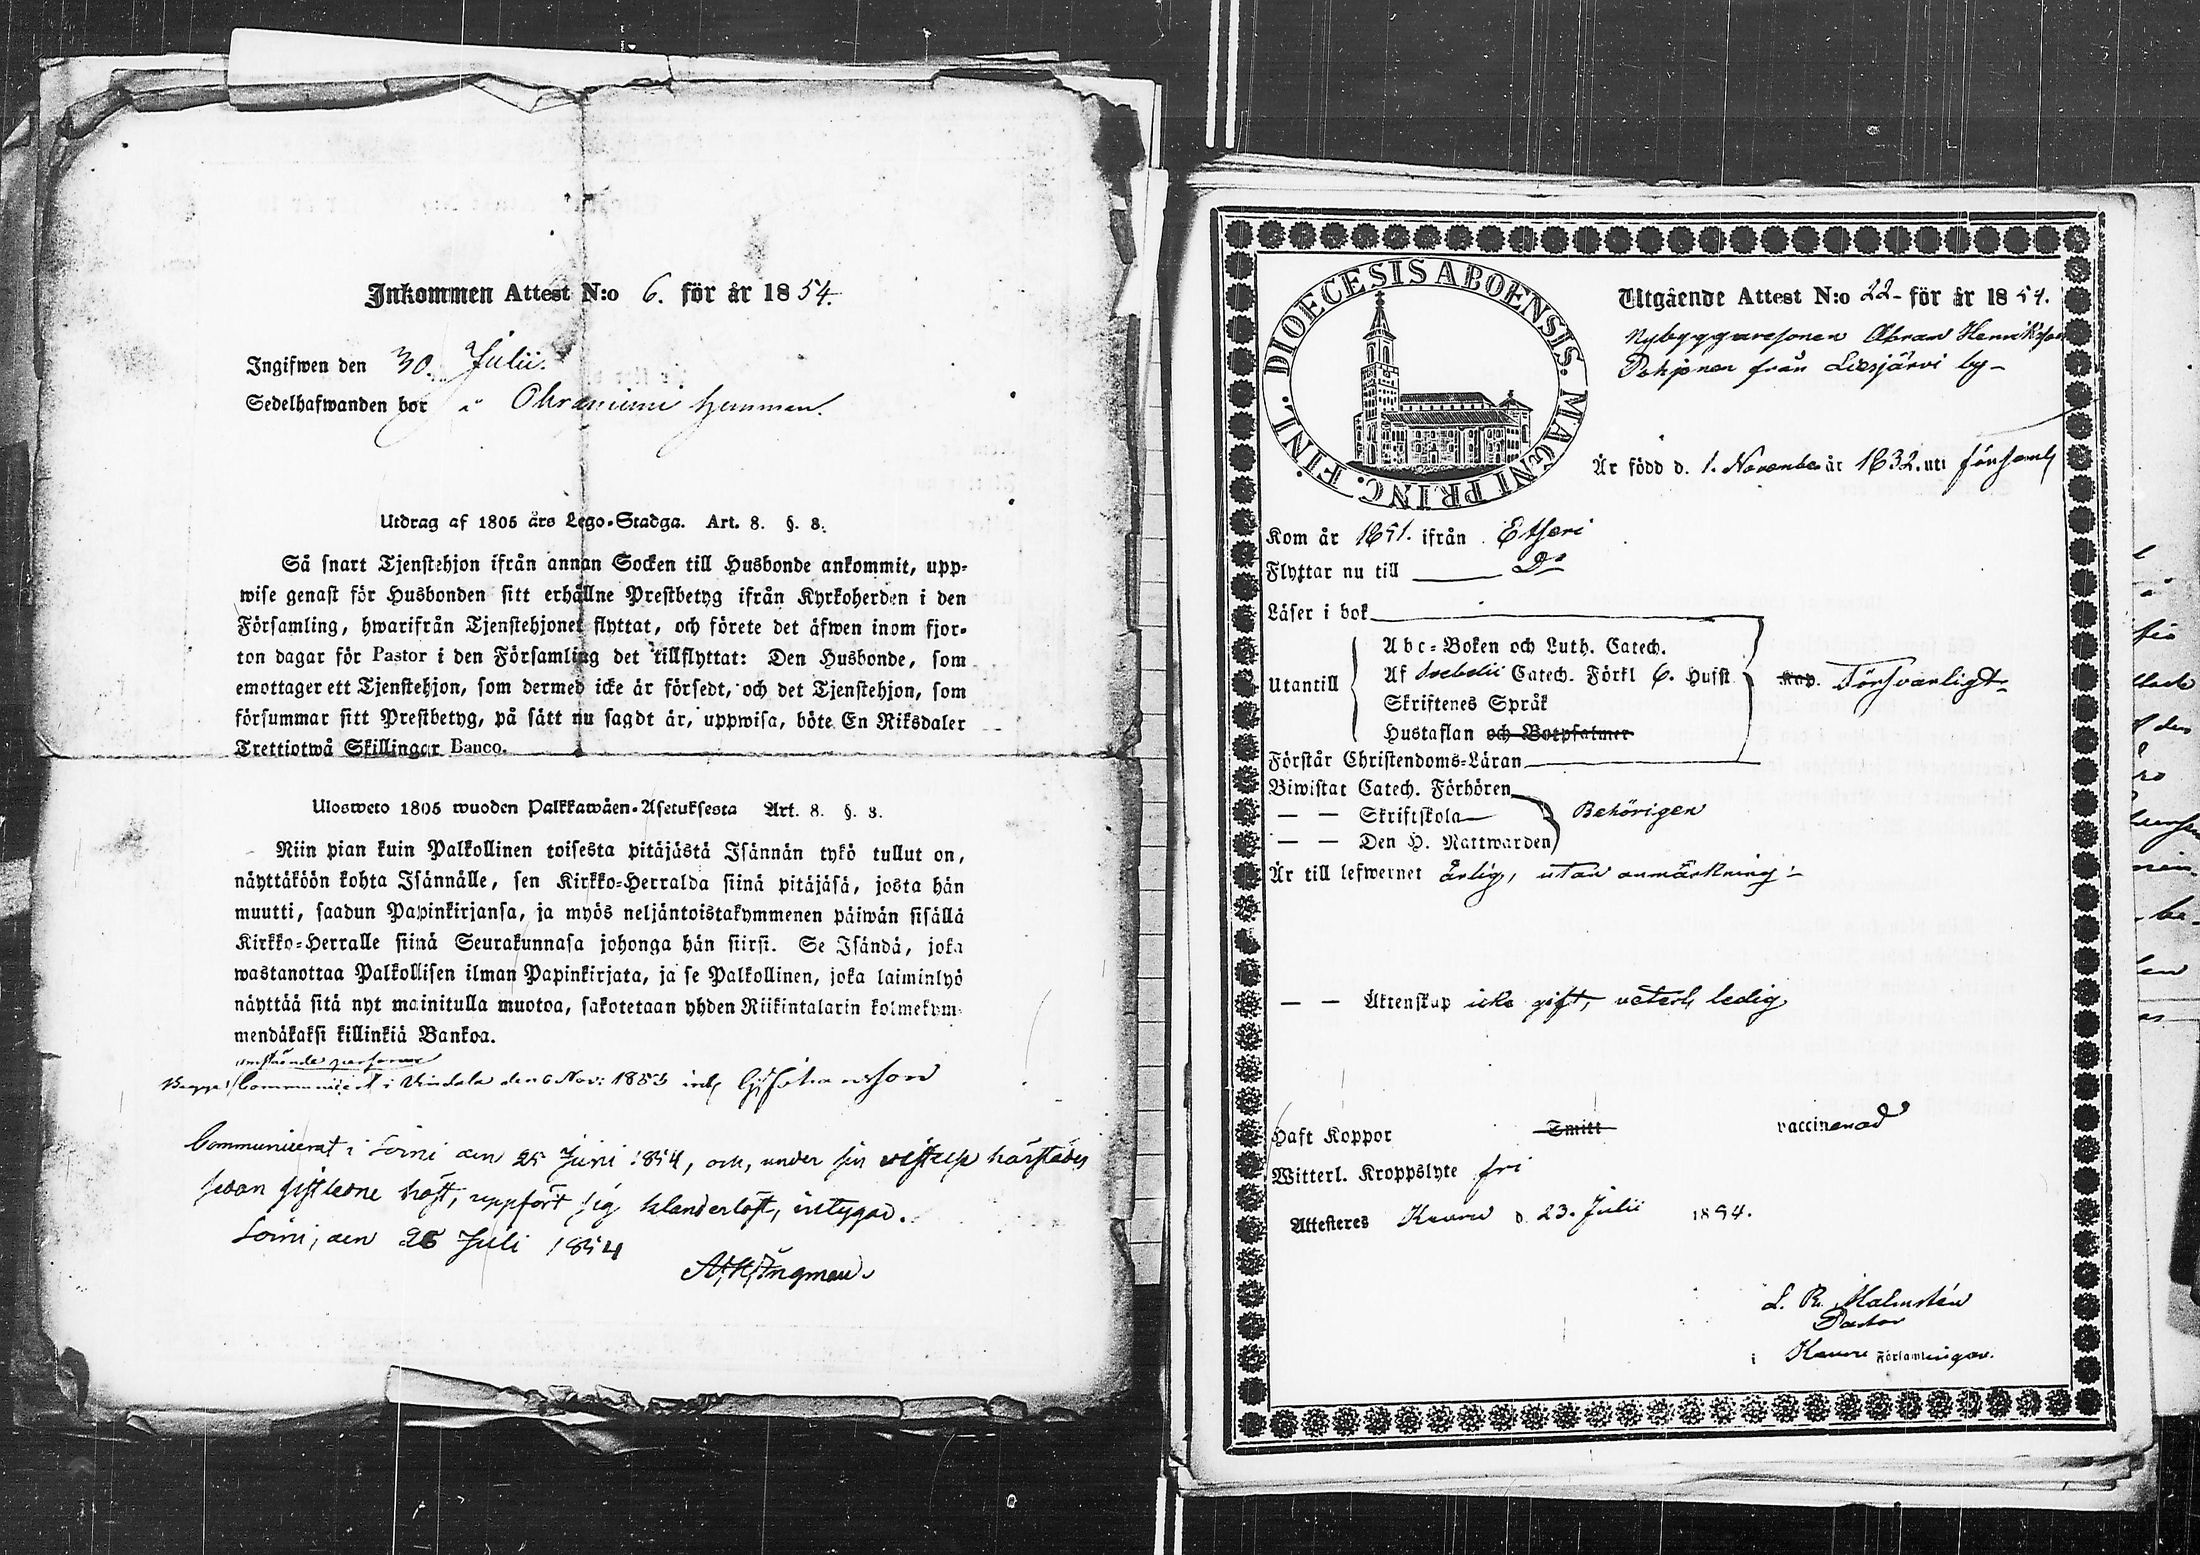 Inkommen Attest N:o 6. för år 1854.
Ingifwen den 30. Julii.
Sedelhafwanden bor å hemman.
Utdrag af 1805 års Lego-Stadga. Art. 8. §. 8.
Så snart Tjenstehjon ifrån annan Socken till Husbonde ankommit, upp-
wise genast för Husbonden sitt erhållne Prestbetyg ifrån Kyrkoherden i den
Församling, hwarifrån Tjenstehjonet flyttat, och förete det äfwen inom fjor-
ton dagar för Pastor i den Församling det tillflyttat: Den Husbonde, som
emottager ett Tjenstehjon, som dermed icke är försedt, och det Tjenstehjon, som
försummar sitt Prestbetyg, på sätt nu sagdt är, uppwisa, böte En Riksdaler
Trettiotwå Skillingar Banco.
Ulosweto 1805 wuoden Palkkawäen-Asetuksesta Art. 8. §. 8.
Niin pian kuin Palkollinen toisesta pitäjästä Isännän tykö tullut on,
näyttäköön kohta Isännälle, sen Kirkko-Herralda siinä pitäjäsä, josta hän
muutti, saadun Papinkirjansa, ja myös neljäntoistakymmenen päiwän sisällä
Kirkko-Herralle siinä Seurakunnasa johonga hän siirsi. Se Isändä, joka
wastanottaa Palkollisen ilman Papinkirjata, ja se Palkollinen, joka laiminlyö
näyttää sitä nyt mainitulla muotoa, sakotetaan yhden Riikintalarin kolmekym-
mendäkaksi killinkiä Bankoa.
omstående personer
Begge Communicerat i Windala den 6 Nov: 1853 Johansson
Communicerat i Soini den 25 Juni 1854, och, under sin vistelse härstädes
sedan sistledne höst, uppfört sig klanderlöst, intygar.
Soini, den 26 Juli 1854
Ingman.
DIOECESIS ABOENSIS. MAGNI PRINC. FINL.
Utgående Attest N:o 22 för år 1854.
Nybyggaresonen Abram Henriksson
Pohjonen från Liesjärvi by
Är född d. 1. November år 1832. uti församl
Kom år 1851. ifrån Etseri
Flyttar nu till Do
Läser i bok
Utantill
Abc-Boken och Luth. Catech.
Af Svebelii Catech. Förkl 6. Hufst
Kap. Försvarligt
Skriftenes Språk
Hustaflan och Botpsalmer
Förstår Christendoms-Läran
Biwistat Catech. Förhören
— — Skriftskola Behörigen
— — Den H. Nattwarden
Är till lefwernet ärlig, utan anmärkning
— — Äktenskap icke gift, veterl. ledig
Haft Koppor Smitt vaccinerad
Witterl. Kroppslyte fri
Attesteres Keuru d. 23. Julii 1854.
L. R. Malmstén
Pastor
i Keuru Församlingar.